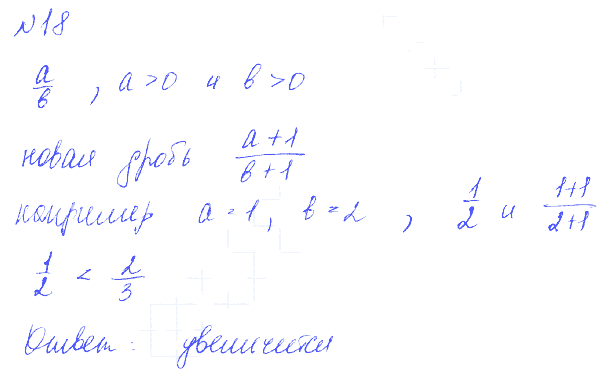 №18
a/b , a>0 и b>0
новая дробь (a+1)/(b+1)
например a=1, b=2 , 1/2 и (1+1)/(2+1)
1/2 < 2/3
Ответ: увеличится